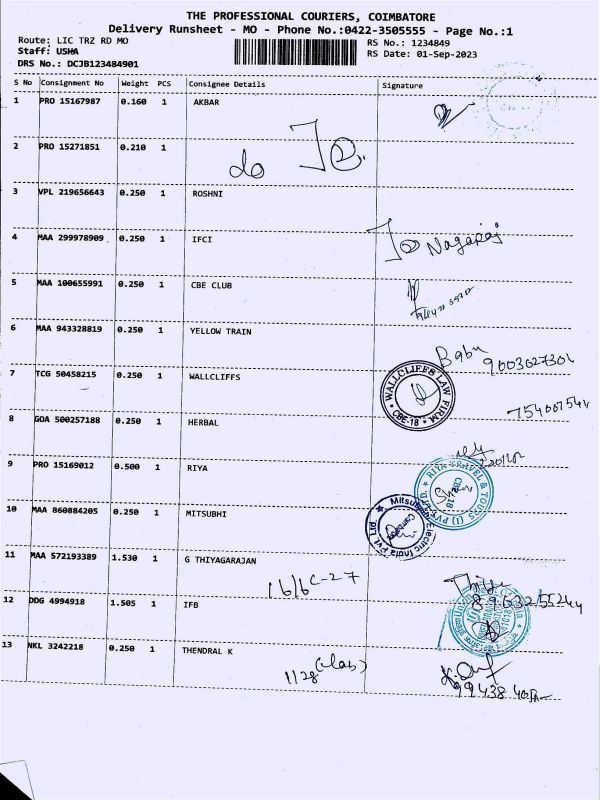 THE PROFESSIONAL COURIERS, COIMBATORE
Delivery Runsheet - MO - Phone No.:0422-3505555 - Page No.:1
Route: LIC TRZ RD MO
RS No.: 1234849
Staff: USHA
RS Date: 01-Sep-2023
DRS No.: DCJB123484901
S No Consignment No Weight PCS Consignee Details Signature
1 PRO 15167987 0.160 1 AKBAR
2 PRO 15271851 0.210 1
do
3 VPL 219656643 0.250 1 ROSHNI
4 MAA 299978909 0.250 1 IFCI
Nagaraj
5 MAA 100655991 0.250 1 CBE CLUB
6 MAA 943328819 0.250 1 YELLOW TRAIN
Babu
9003627301
7 TCG 50458215 0.250 1 WALLCLIFFS
WALLCLIFFS LAW FIRM
CBE-18
8 GOA 500257188 0.250 1 HERBAL
9 PRO 15169012 0.500 1 RIYA
RIYA TRAVEL & TOURS (I) PVT. LTD.
10 MAA 860884205 0.250 1 MITSUBHI
Mitsubishi Electric India Pvt. Ltd.
Coimbatore
11 MAA 572193389 1.530 1 G THIYAGARAJAN
16/6 C-27
12 DDG 4994918 1.505 1 IFB
13 NKL 3242218 0.250 1 THENDRAL K
1128